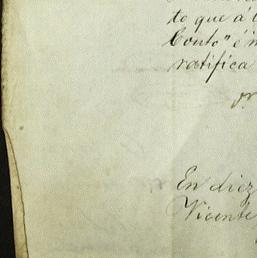 te que á l
Couto" é in
ratifica
En diez
Vicente